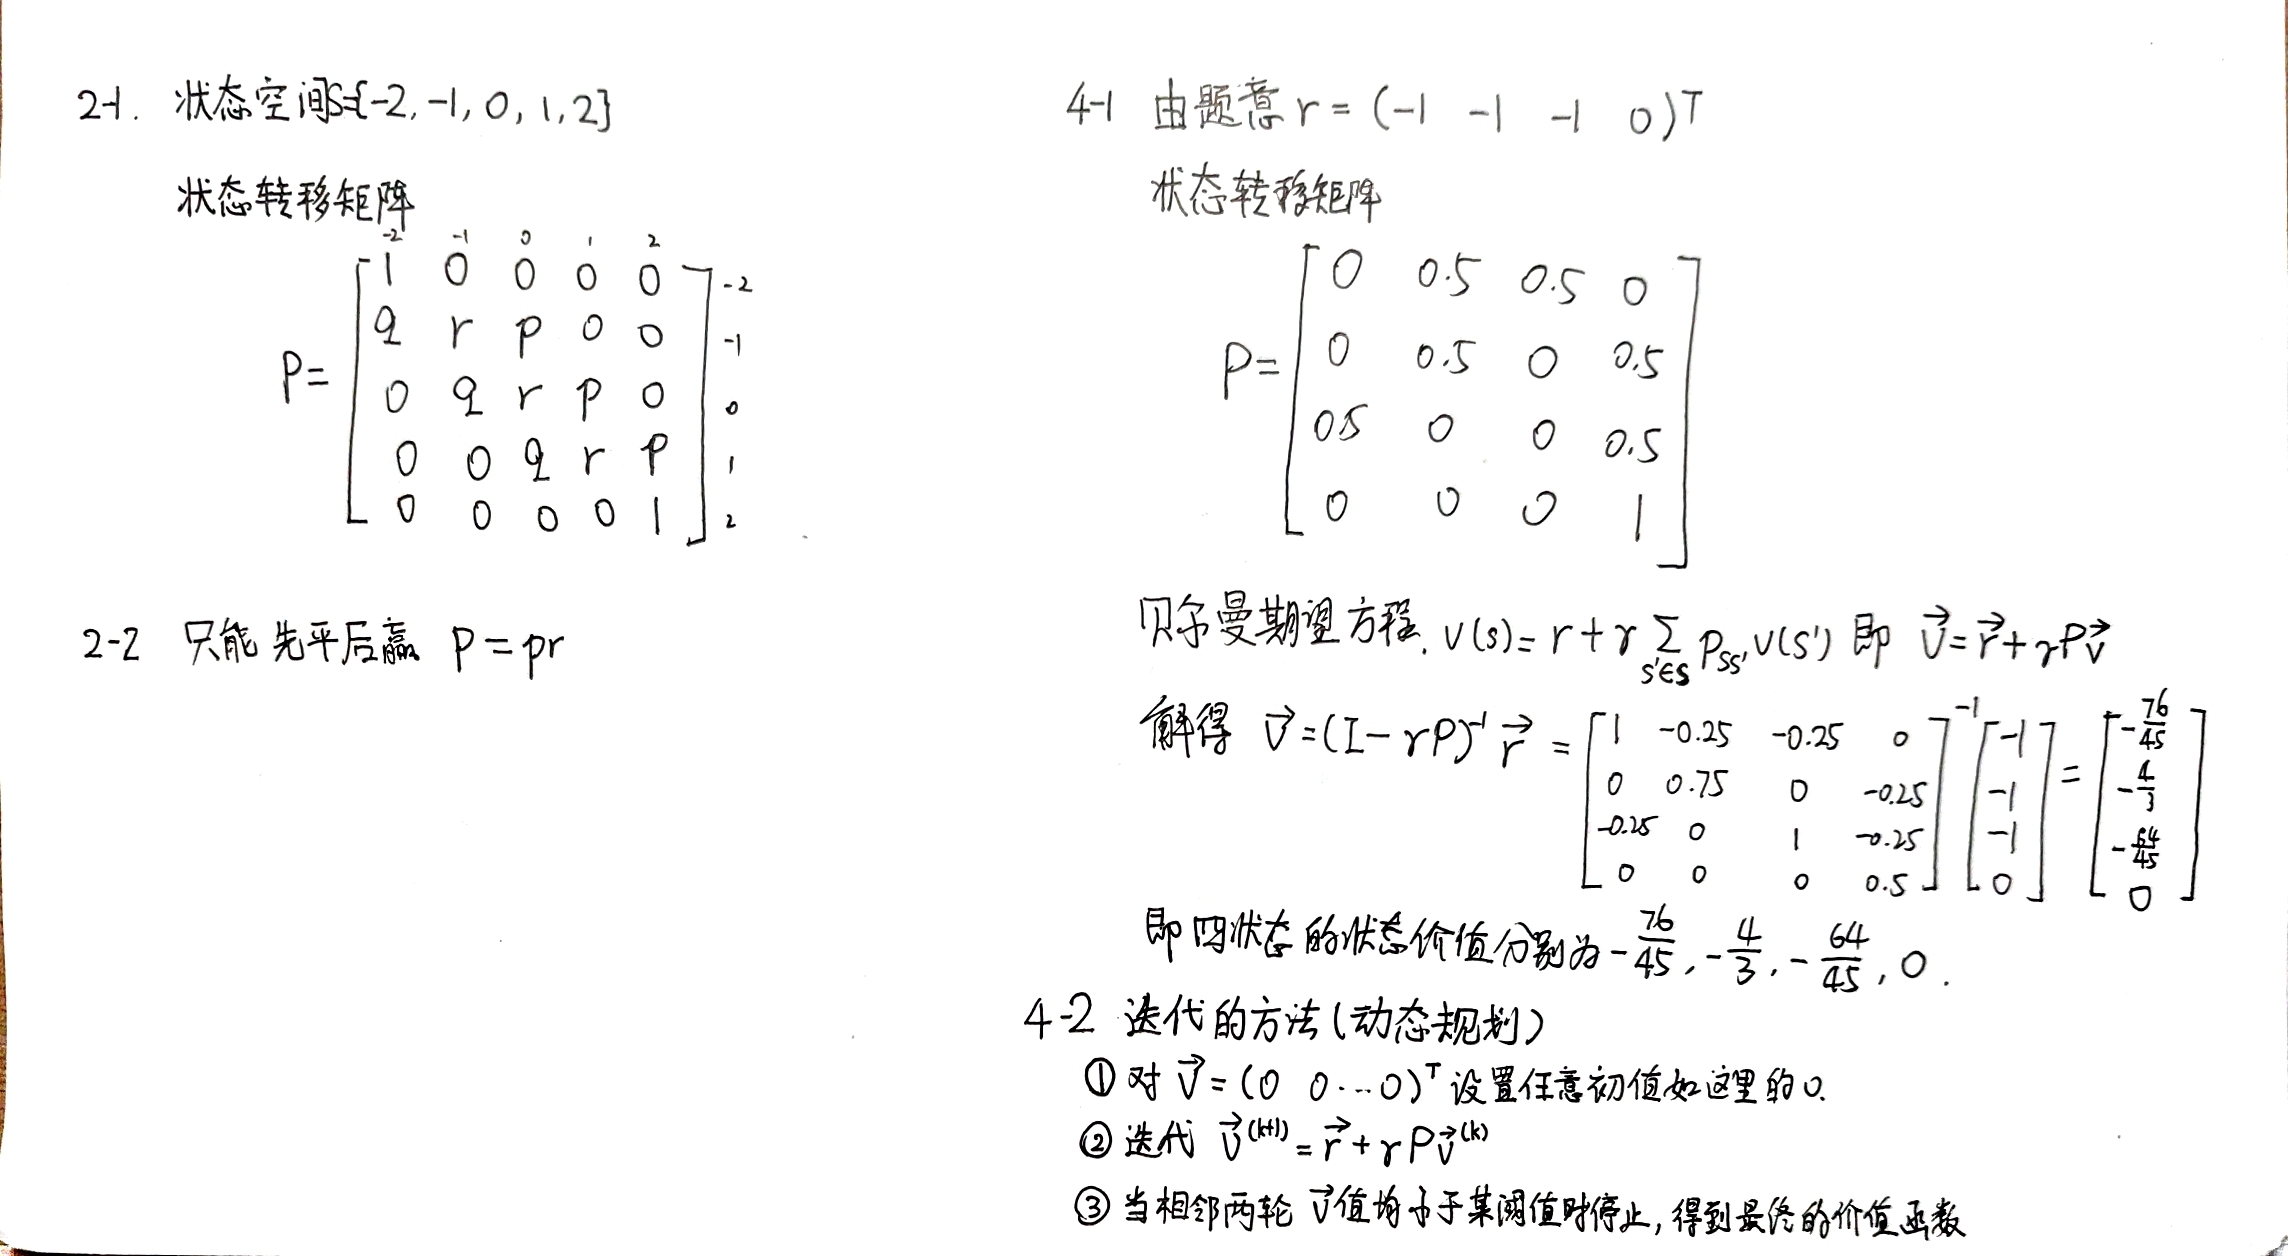 2-1. 状态空间S={-2, -1, 0, 1, 2}
状态转移矩阵
-2 -1 0 1 2
P= [1 0 0 0 0] -2
[q r p 0 0] -1
[0 q r p 0] 0
[0 0 q r p] 1
[0 0 0 0 1] 2
2-2 只能先平后赢 P=pr
4-1 由题意 r = (-1 -1 -1 0)T
状态转移矩阵
P= [0 0.5 0.5 0]
[0 0.5 0 0.5]
[0.5 0 0 0.5]
[0 0 0 1]
贝尔曼期望方程. V(s)= r + γ Σ_{s'∈S} P_{ss'} V(s') 即 v⃗=r⃗+γPv⃗
解得 v⃗=(I-γP)⁻¹ r⃗ = [1 -0.25 -0.25 0; 0 0.75 0 -0.25; -0.25 0 1 -0.25; 0 0 0 0.5]⁻¹ [-1; -1; -1; 0] = [-76/45; -4/3; -64/45; 0]
即四状态的状态价值分别为 -76/45, -4/3, -64/45, 0.
4-2 迭代的方法(动态规划)
① 对 v⃗=(0 0…0)ᵀ 设置任意初值如这里的0.
② 迭代 v⃗⁽ᵏ⁺¹⁾=r⃗+γPv⃗⁽ᵏ⁾
③ 当相邻两轮 v⃗值均小于某阈值时停止, 得到最终的价值函数